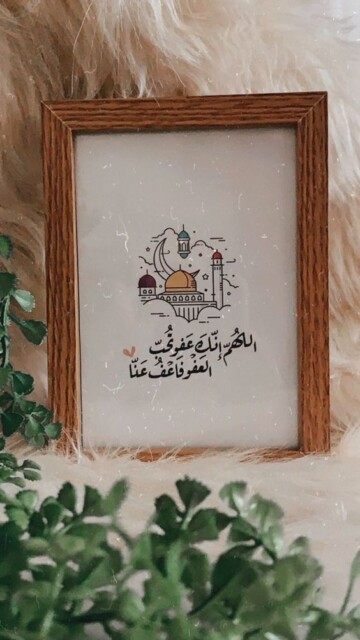 اللهُمّ إنّكَ عَفو تُحّبّ
العَفْو فاعْفُ عَنّا